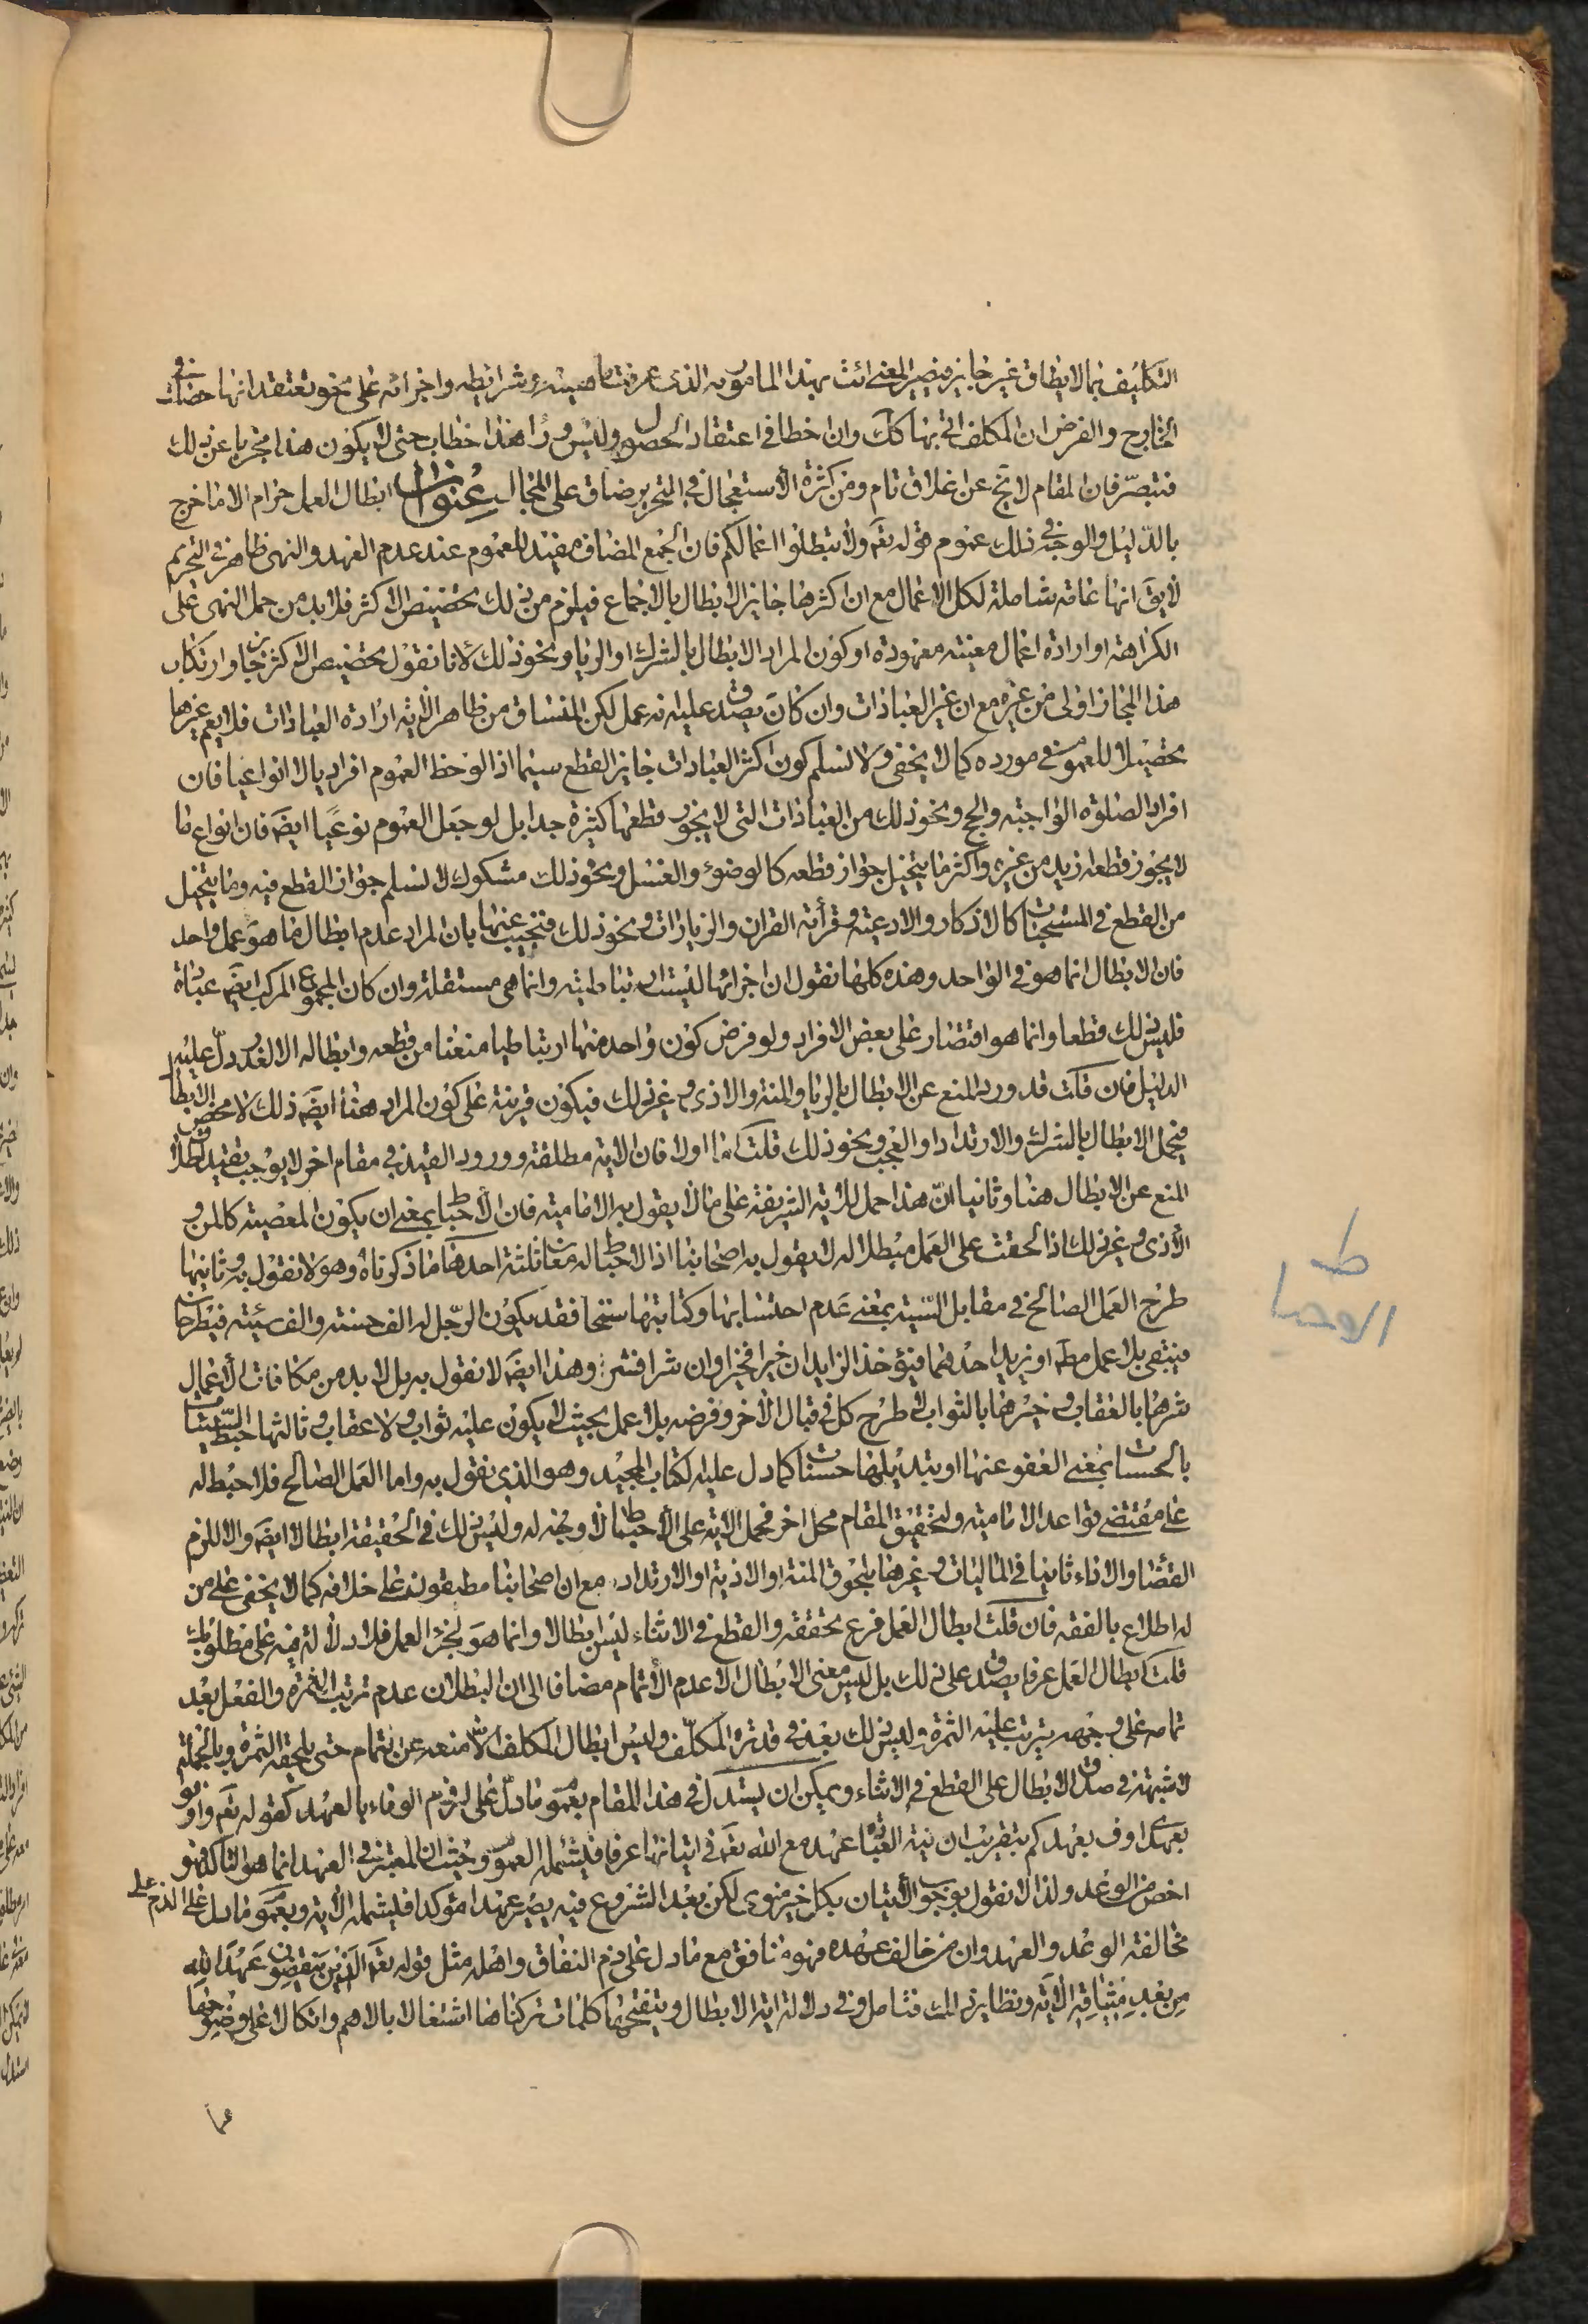 التكليف بما لا يطاق غير جايز فيصير المعنى ائت بهذا المامور به الذى عرفت ماهيته وشرايطه واجزائه على نحو تعتقد انها حصلت في
الخارج والفرض ان المكلف اتى بها كك وان اخطا في اعتقاد الحصول وليس وراء هذا خطاب حتى لا يكون هذا مجزيا عن ذلك
فتبصر فان المقام لا يخ عن اغلاق تام ومن كثرة الاستعجال في التحرير ضاق على المجال عنوان ابطال العمل حرام الا ما خرج
بالدليل والوجه في ذلك عموم قوله تعم ولا تبطلوا اعمالكم فان الجمع المضاف مفيد للعموم عند عدم العهد والنهى ظاهر في التحريم
لا يق انها عامة شاملة لكل الاعمال مع ان اكثرها جايز الابطال بالاجماع فيلزم من ذلك تخصيص الاكثر فلا بد من حمل النهى على
الكراهة او ارادة اعمال معينة معهودة او كون المراد الابطال بالشرك او الريا ونحو ذلك لانا نقول تخصيص الاكثر جايز وارتكاب
هذا المجاز اولى من غيره مع ان غير العبادات وان كان يصدق عليه انه عمل لكن المنساق من ظاهر الاية ارادة العبادات فلا يعم غيرها
تحصيلا للعموم في مورده كما لا يخفى ولا نسلم كون اكثر العبادات جايز القطع سيما اذا لوحظ العموم افراديا لا انواعيا فان
افراد الصلوة الواجبة والحج ونحو ذلك من العبادات التى لا يجوز قطعها كثيرة جدا بل لو جعل العموم نوعيا ايضه فان انواع ما
لا يجوز قطعه ازيد من غيره واكثر ما يتخيل جواز قطعه كالوضوء والغسل ونحو ذلك مشكوك لا نسلم جواز القطع فيه وما يتخيل
من القطع في المستحبات كالاذكار والادعية وقرائة القران والزيارات ونحو ذلك فنجيب عنها بان المراد عدم ابطال ما هو عمل واحد
فان الابطال انما هو في الواحد وهذه كلها نقول ان اجزائها ليست ارتباطية وانما هى مستقلة وان كان المجموع المركب ايضه عبادة
فليس ذلك قطعا وانما هو اقتصار على بعض الافراد ولو فرض كون واحد منها ارتباطيا منعنا من قطعه وابطاله الا لعذر دل عليه
الدليل فان قلت قد ورد المنع عن الابطال بالريا والمنة والاذى وغير ذلك فيكون قرينة على كون المراد هنا ايضه ذلك لا محض الابطال
فيحمل الابطال بالشرك والارتداد او العجب ونحو ذلك قلت اما اولا فان الاية مطلقة وورود القيد في مقام اخر لا يوجب تقييد اطلاق
المنع عن الابطال هنا وثانيا ان هذا حمل للاية الشريفة على ما لا يقول به الامامية فان الاحباط بمعنى ان يكون المعصية كالمن و
الاذى وغير ذلك اذا لحقت على العمل مبطلا له لا يقول به اصحابنا اذ الاحباط له معان ثلثة احدها ما ذكرناه وهو لا نقول به وثانيها
طرح العمل الصالح في مقابل السيئة بمعنى عدم احتسابها وكتابتها سنخا فقد يكون الرجل له الف حسنة والف سيئة فيطرحان
فيبقى بلا عمل مطه او يزيد احدهما فيؤخذ الزايد ان خيرا فخيرا وان شرا فشر وهذا ايضه لا نقول به بل لا بد من مكافات الاعمال
شرها بالعقاب وخيرها بالثواب لا طرح كل في قبال الاخر وفرضه بلا عمل بحيث لا يكون عليه ثواب ولا عقاب وثالثها حبط السيئات
بالحسنات بمعنى العفو عنها او تبديلها حسنات كما دل عليه لكتاب المجيد وهو الذى نقول به واما العمل الصالح فلا حبط له
على مقتضى قواعد الامامية ولتحقيق المقام محل اخر فحمل الاية على الاحباط مما لا وجه له وليس ذلك في الحقيقة ابطالا ايضه والا للزم
القضا والاداء ثانيا في الماليات وغيرها بلحوق المنة او الاذية او الارتداد مع ان اصحابنا مطبقون على خلافه كما لا يخفى على من
له اطلاع بالفقه فان قلت ابطال العمل فرع تحققه والقطع في الاثناء ليس ابطالا وانما هو لجزء العمل فلا دلالة فيه على مطلوبك
قلت ابطال العمل عرفا يصدق على ذلك بل ليس معنى الابطال الا عدم الاتمام مضافا الى ان البطلان عدم ترتيب الثمرة والفعل بعد
تمامه على وجهه يترتب عليه الثمرة وليس ذلك بعد في قدرة المكلف وليس ابطال المكلف الا منعه عن اتمام حتى يلحقه الثمرة وبالجملة
لا شبهة في صدق الابطال على القطع في الاثناء ويمكن ان يستدل في هذا المقام بعموم ما دل على لزوم الوفاء بالعهد كقوله تعم واوفوا
بعهدى اوف بعهدكم بتقريب ان نية العبادة عهد مع الله تعه في اتيانها عرفا فيشمله العموم وحيث ان المعتبر في العهد انما هو التاكد فهو
اخص من الوعد ولذا لا نقول بوجوب الاتيان بكل خير منوى لكن بعد الشروع فيه يصير عهدا مؤكدا فليشمله الاية وبعموم ما دل على الذم على
مخالفة الوعد والعهد وان من خالف عهده فهو منافق مع ما دل على ذم النفاق واهله مثل قوله تعه الذين ينقضون عهد الله
من بعد ميثاقه الاية ونظاير ذلك فتامل وفي دلالة اية الابطال وتنقيحها كلمات تركناها اشتغالا بالاهم واتكالا على وضوحها
عما
ط
الاوصيا